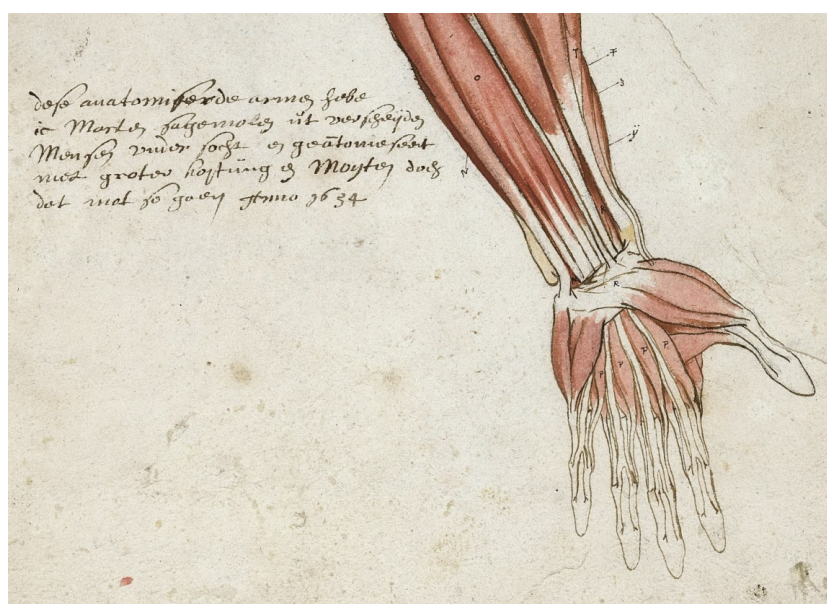 dese anatomiserde armen hebe
ic Marten sagemolen ut verscheijden
Mensen onder socht en geatomiseert
met groter kostung en Moijten doch
dat mot so gaen Anno 1634
O
T
F
S
ÿ
N
R
P P P P